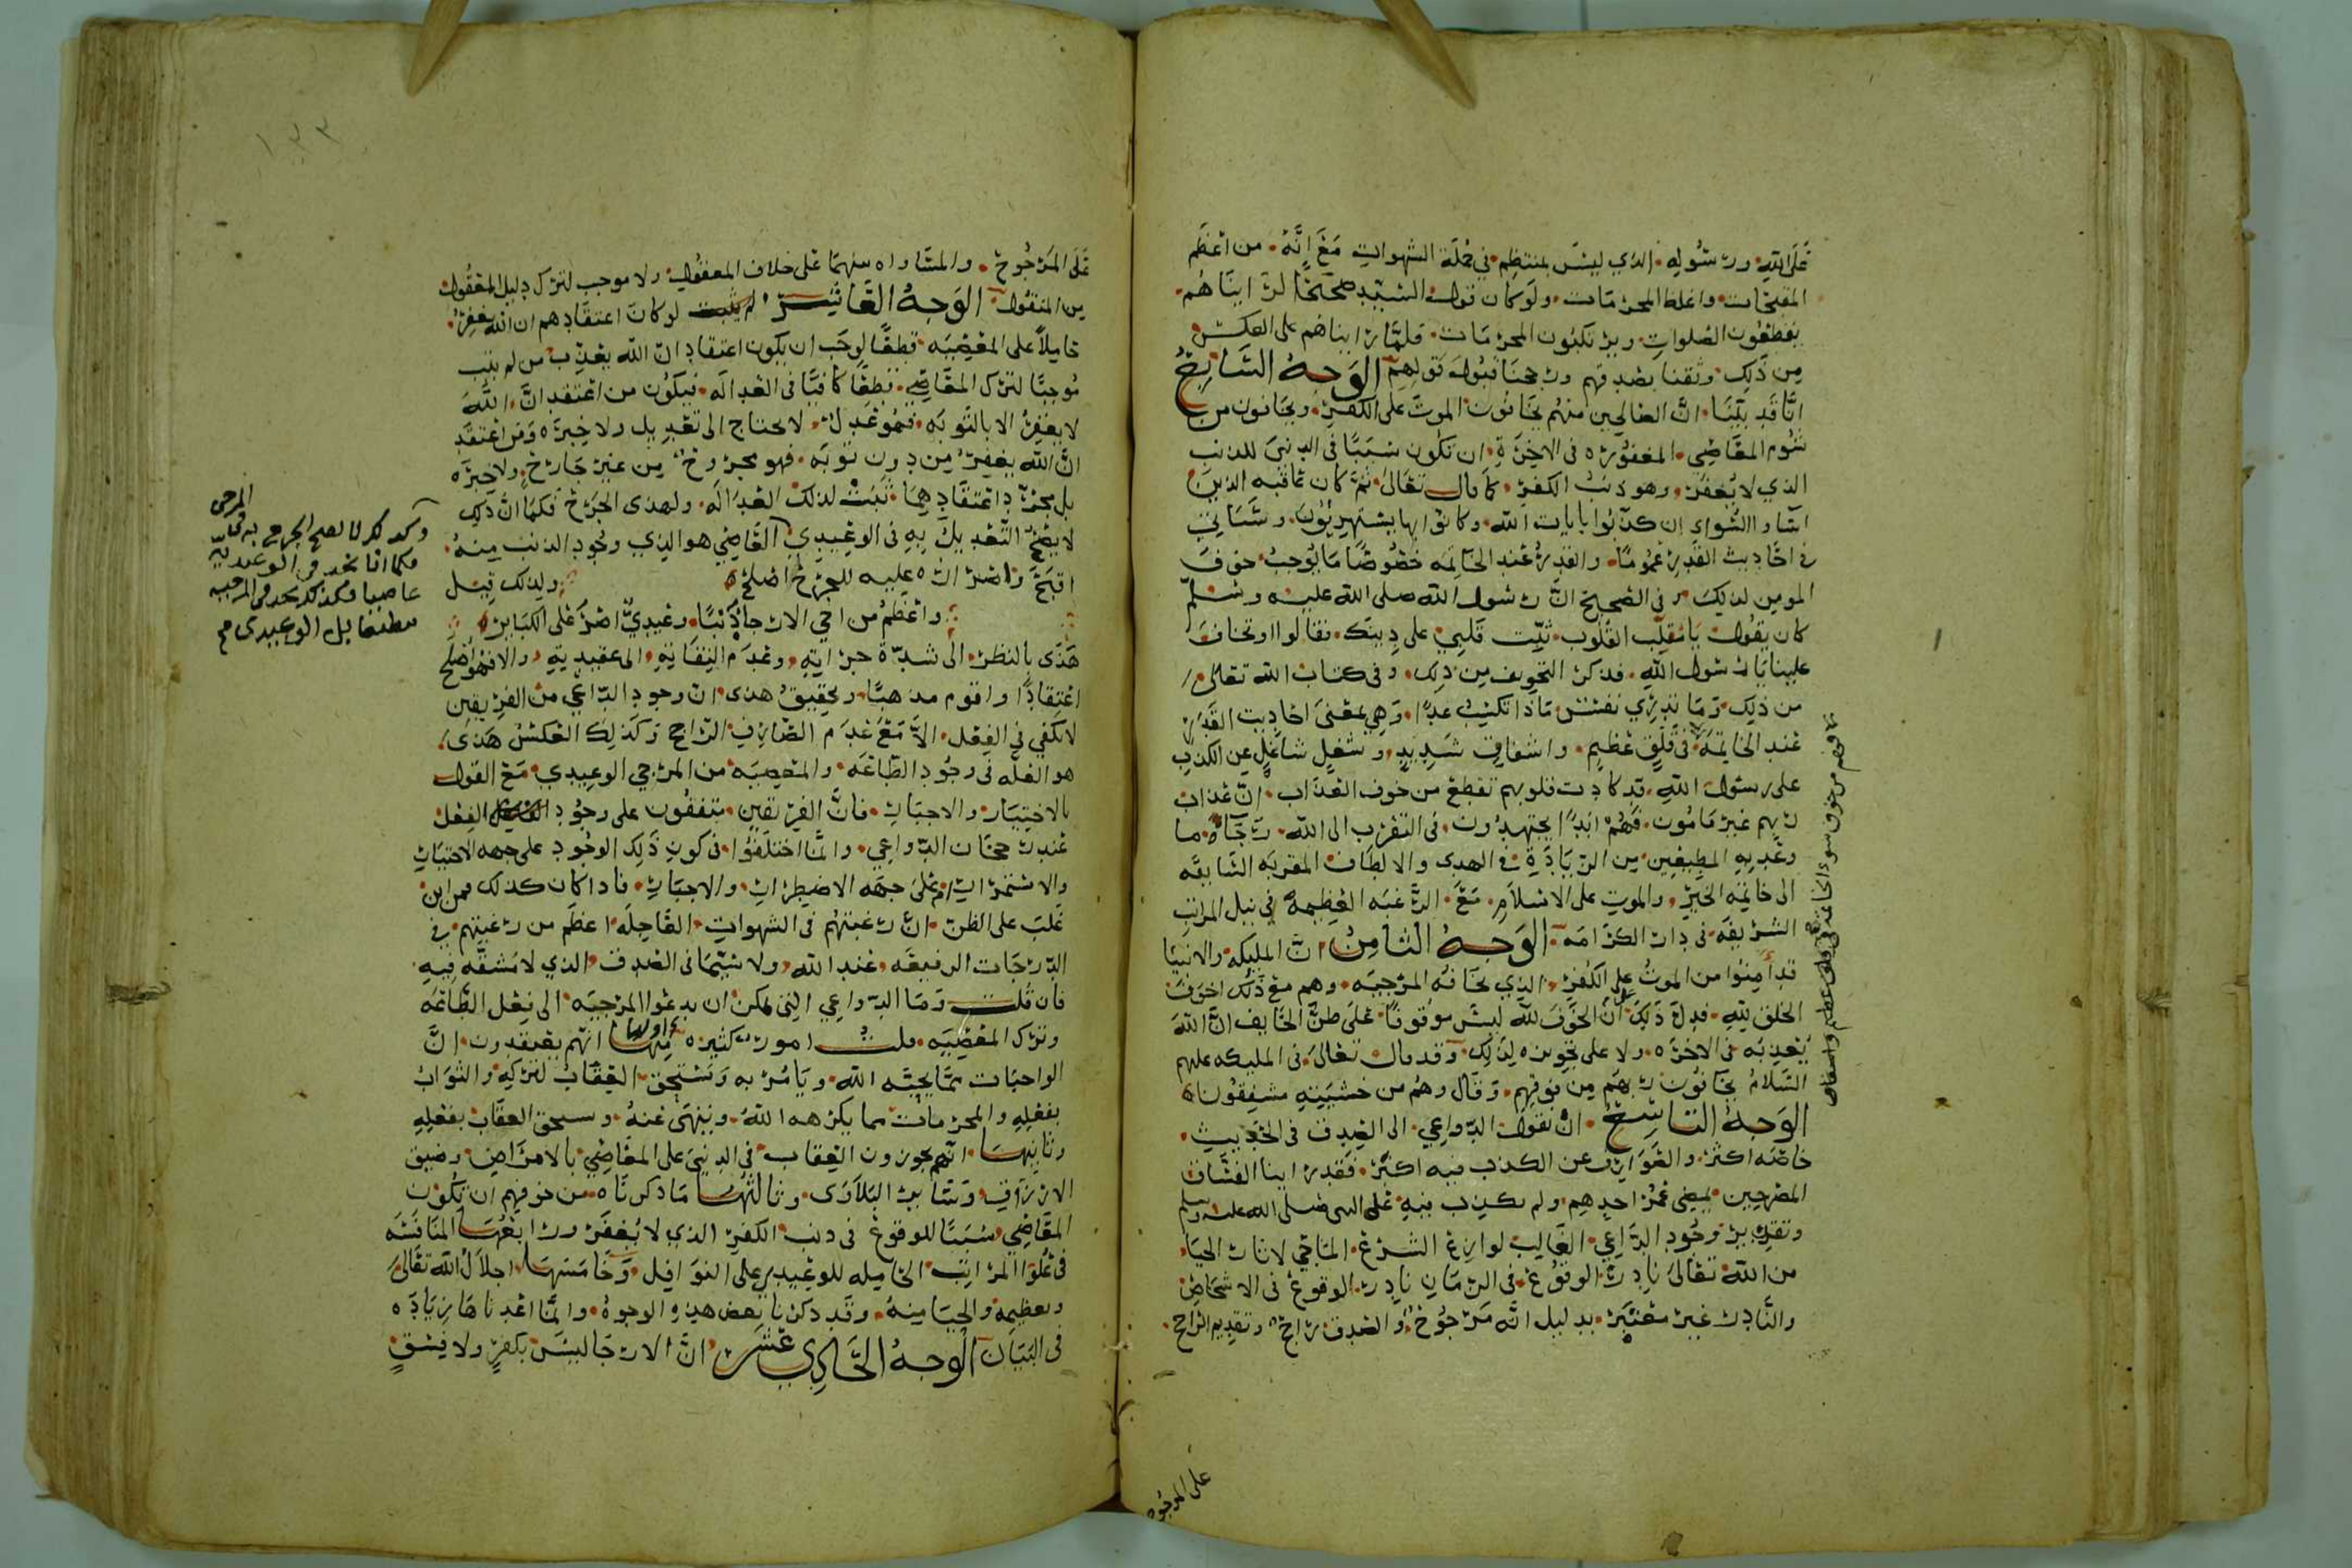 على الله ورسوله الذي ليس بمنتظم في جملة الشهوات مع انه من اعظم
المقبحات واغلظ المحرمات ولو كان قول السيد صحيحا لرايناهم
يقطعون الصلوات ويرتكبون المحرمات فلما رايناهم على العكس
من ذلك وثقنا بصدقهم ورجحنا قبول قولهم الوجه السابع
انا قد بينا ان الصالحين منهم يخافون الموت على الكفر ويخافون من
شوم المعاصي المغفوره في الاخرة ان تكون سببا في الدنيى للذنب
الذي لا يغفر وهو ذنب الكفر كما قال تعالى ثم كان عاقبه الذين
اساوا السواى ان كذبوا بايات الله وكانوا بها يستهزيون وسياتي
في احاديث القدر عموما والقدر عند الخاتمه خصوصا ما يوجب خوف
المومن لذلك وفي الصحيح ان رسول الله صلى الله عليه وسلم
كان يقول يا مقلب القلوب ثبت قلبي على دينك فقالوا او تخاف
علينا يا رسول الله فذكر التخويف من ذلك وفي كتاب الله تعالى
من ذلك وما تدري نفس ماذا تكسب غدا وهي بمعنى احاديث القدر
عند الخاتمه في قلق عظيم واشفاق شديد وشغل شاغل عن الكذب
على رسول الله قد كادت قلوبهم تقطع من خوف العذاب ان عذاب
ربهم غير مامون فهم ابدا يجتهدون في التقرب الى الله رجاء ما
وعد به المطيعين من الزيادة في الهدى والالطاف المقربه السابقه
الى خاتمه الخير والموت على الاسلام مع الرغبه العظيمة في نيل المراتب
الشريفه في دار الكرامه الوجه الثامن ان المليكه والانبيا
قد امنوا من الموت على الكفر الذي تخافه المرجيه وهم مع ذلك اخوف
الخلق لله فدل ذلك على ان الخوف لله ليس موقوفا على ظن الخايف ان الله
يعذبه في الاخره ولا على تجويزه لذلك وقد قال تعالى في المليكه عليهم
السلام يخافون ربهم من فوقهم وقال وهم من خشيته مشفقون
الوجه التاسع ان نقول الدواعي الى الصدق في الحديث
خاصه اكثر والصوارف عن الكذب فيه اكثر فقد راينا الفساق
المصرحين يمضي عمر احدهم ولم يكذب فيه على النبي صلى الله عليه وسلم
وتقدير وجود الداعي الغالب لوازع الشرع الماحي لاثار الحيا
من الله تعالى نادر الوقوع في الزمان نادر الوقوع في الاشخاص
والنادر غير معتبر بدليل انه مرجوح والصدق راجح وتقديم الراجح
على المرجوح
فهم من خوف سوء الخاتمه في قلق عظيم واشفاق
على المرجوح والمساواه بينهما على خلاف المعقول ولا موجب لترك دليل المعقول
من المنقول الوجه العاشر لو كان اعتقادهم ان الله يغفر
حاملا على المعصيه قطعا لوجب ان يكون اعتقاد ان الله يعذب من لم يتب
موجبا لترك المعاصي قطعا كافيا في العداله فيكون من اعتقد ان الله
لا يغفر الا بالتوبه فهو عدل لا يحتاج الى تعديل ولا خبره ومن اعتقد
ان الله يغفر من دون توبه فهو مجروح من غير جارح ولا خبره
بل بمجرد اعتقاديهما ثبت لذلك العداله ولهذى الجرح فكما ان ذلك
لا يصح التعديل به في الوعيدي العاصي هو الذي وجود الذنب منه
اقبح واضراره عليه للجرح اصلح ولذلك قيل
واعظم من اخي الارجا ذنبا وعيدي اصر على الكباير
هذى بالنظر الى شدة جراته وعدم التفاته الى عقيدته والا فهو اصلح
اعتقادا واقوم مذهبا وتحقيق هذى ان وجود الداعي من الفريقين
لا يكفي في الفعل الا مع عدم الصارف الراجح وكذلك العكس هذى
هو العله في وجود الطاعه والمعصيه من المرجي الوعيدي مع القول
بالاختيار والاجبار فان الفريقين متفقون على وجود الفعل
عند رجحان الدواعي وانما اختلفوا في كون ذلك الوجود على جهه الاختيار
والاستمرار ام على جهه الاضطرار والاجبار فاذا كان كذلك فمن اين
غلب على الظن ان رغبتهم في الشهوات العاجله اعظم من رغبتهم في
الدرجات الرفيعه عند الله ولا سيما في الصدق الذي لا مشقه فيه
فان قلت وما الدواعي التي يمكن ان يدعوا المرجيه الى فعل الطاعه
وترك المعصيه قلت امور كثيره منها اولها انهم يعتقدون ان
الواجبات مما يحبه الله ويامر به ويستحق العقاب لتركه والثواب
بفعله والمحرمات مما يكرهه الله وينهى عنه ويستحق العقاب بفعله
وثانيها انهم يجوزون العقاب في الدنيى على المعاصي بالامراض وضيق
الارزاق وساير البلاوى وثالثها ما ذكرناه من خوفهم ان تكون
المعاصي سببا للوقوع في ذنب الكفر الذي لا يغفر ورابعها المنافسه
في علو المراتب الحامله للوعيدي على النوافل وخامسها اجلال الله تعالى
وتعظيمه والحيا منه وقد ذكرنا بعض هذه الوجوه وانما اعدناها زياده
في البيان الوجه الحادي عشر ان الارجا ليس بكفر ولا فسق
المرجي
وكذلك لا يصح الجرح به في
فكما انا نجد في الوعيديه
عاصيا فكذلك نجد في المرجيه
مطيعا بل الوعيدي
١٢٢